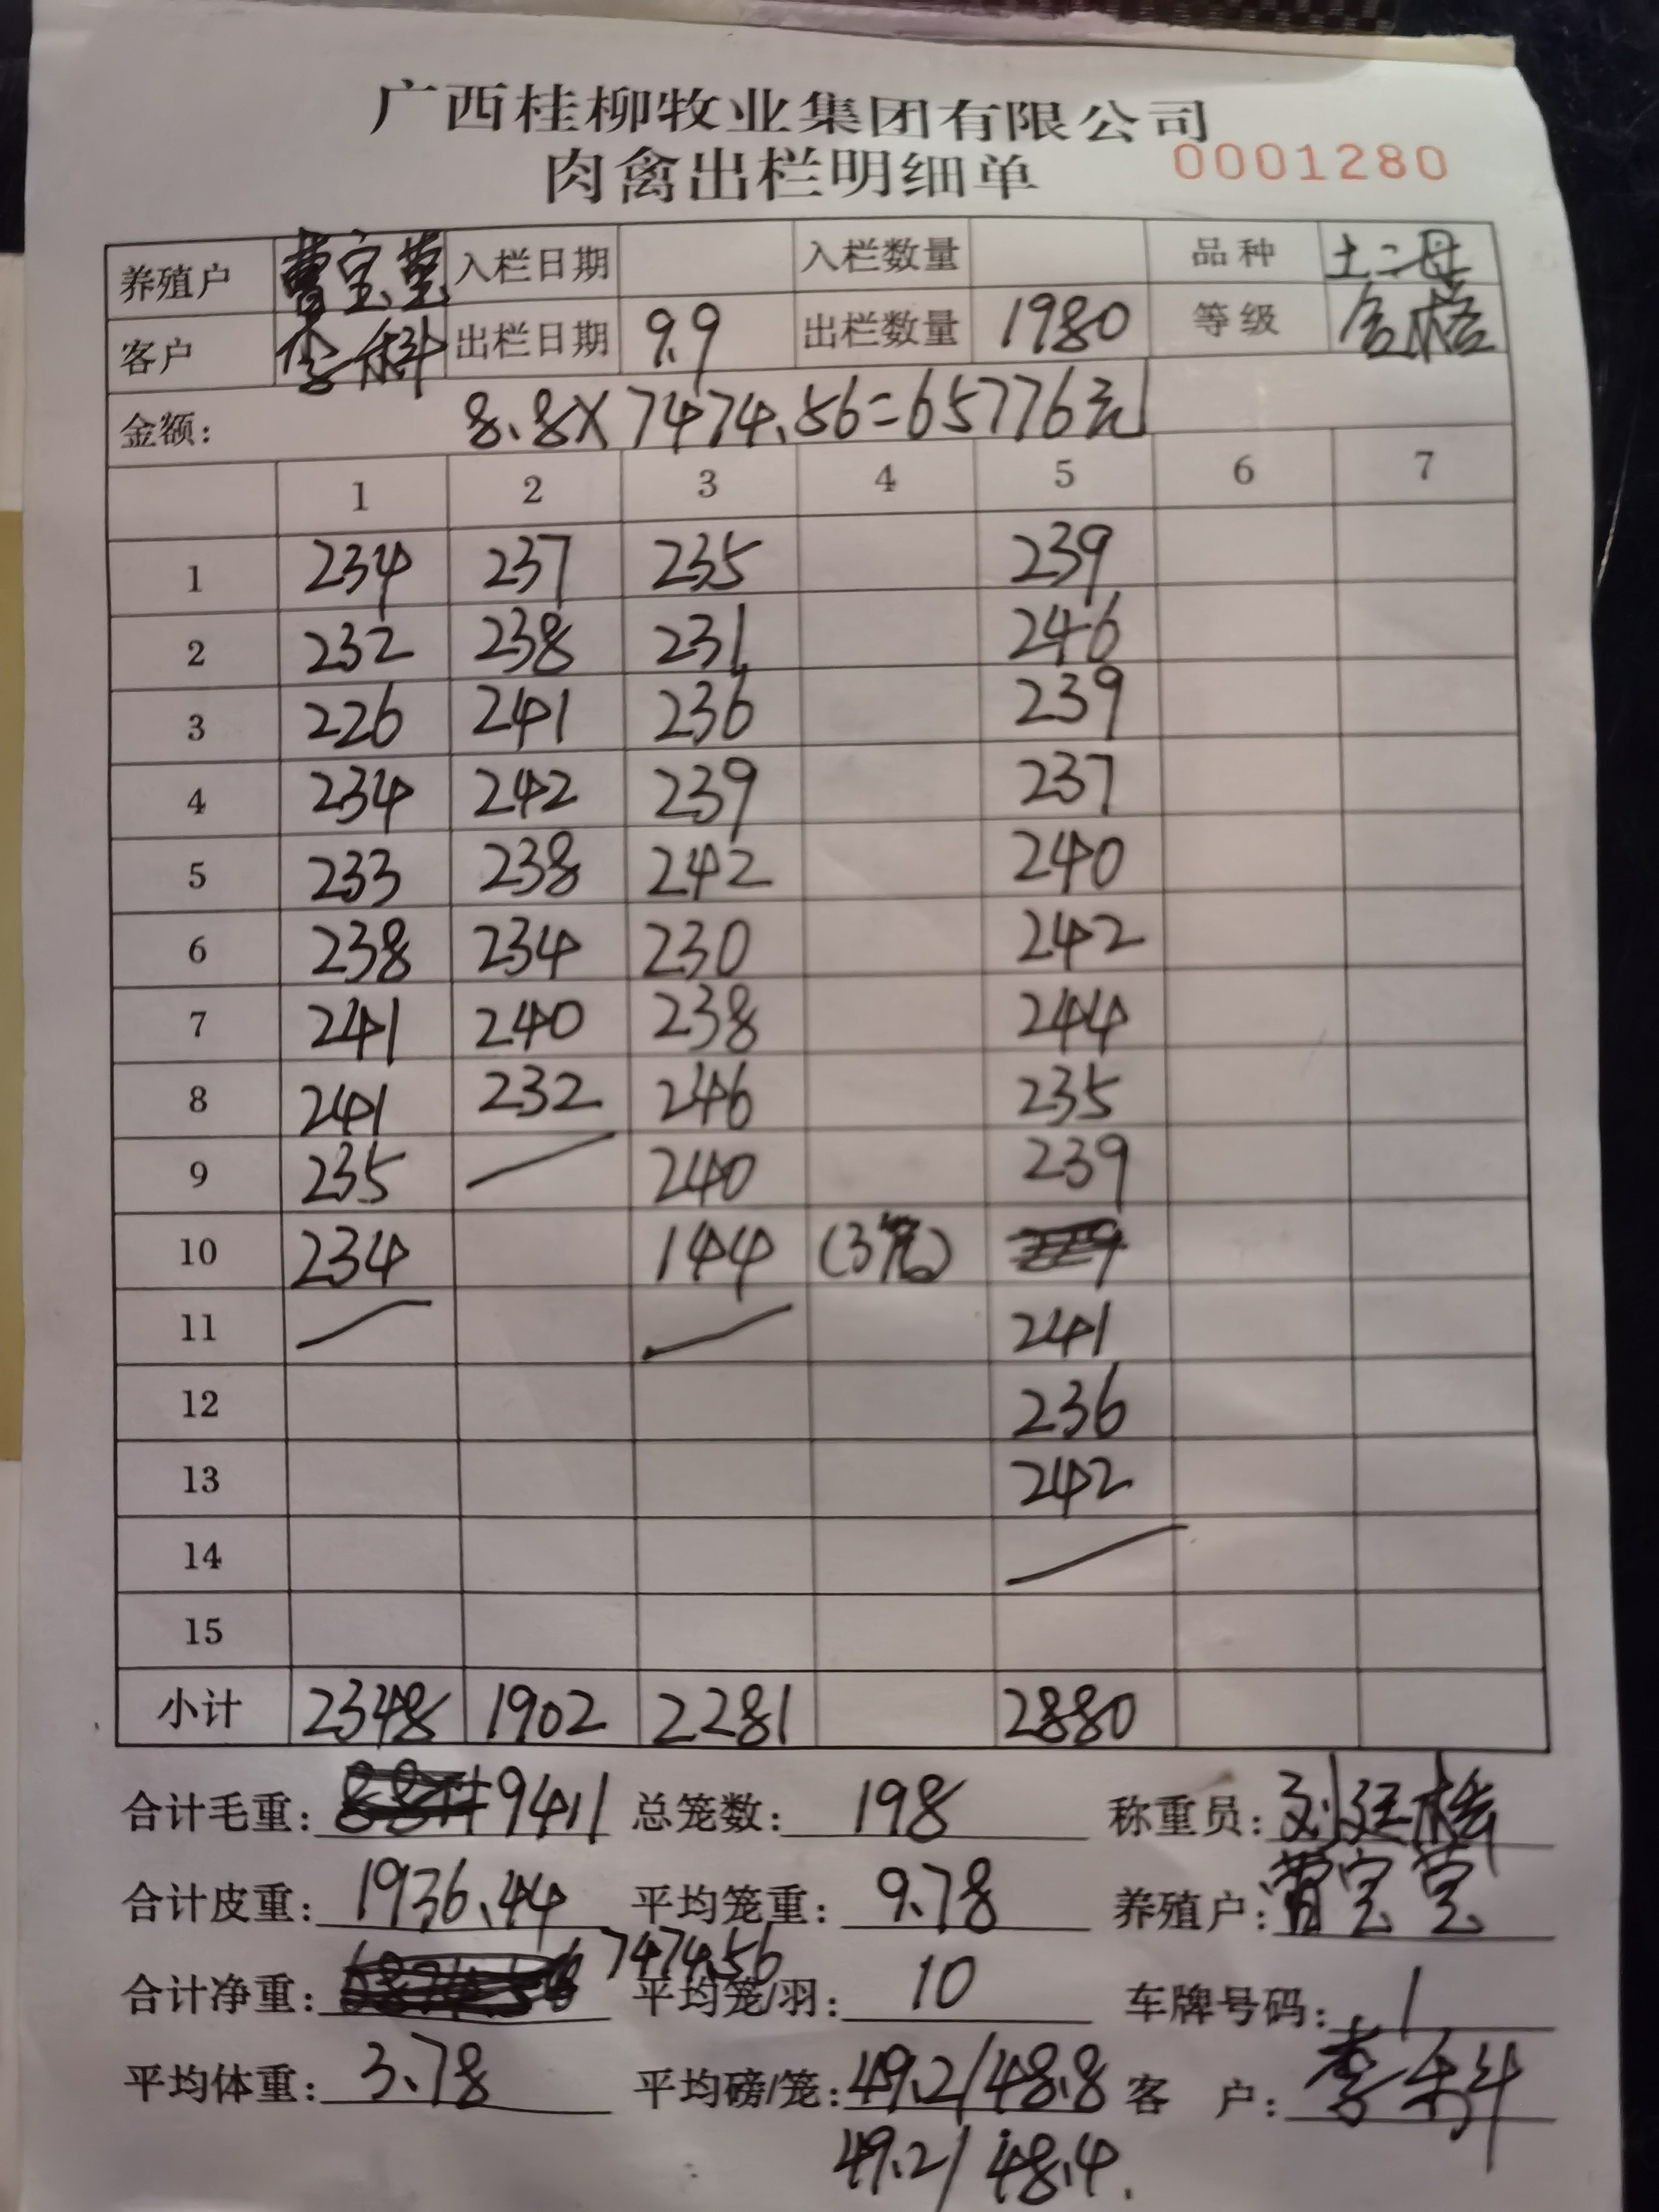 广西桂柳牧业集团有限公司
肉禽出栏明细单 0001280
养殖户 曹宝莹 入栏日期 入栏数量 品种 土二母
客户 李科 出栏日期 9.9 出栏数量 1980 等级 合格
金额: 8.8×7474.56=65776元
1 2 3 4 5 6 7
1 234 237 235 239
2 232 238 231 246
3 226 241 236 239
4 234 242 239 237
5 233 238 242 240
6 238 234 230 242
7 241 240 238 244
8 241 232 246 235
9 235 240 239
10 234 144 (3笼)
11 241
12 236
13 242
14
15
小计 2348 1902 2281 2880
合计毛重: 9411 总笼数: 198 称重员: 刘廷
合计皮重: 1936.44 平均笼重: 9.78 养殖户: 曹宝莹
合计净重: 7474.56 平均笼/羽: 10 车牌号码: 1
平均体重: 3.78 平均磅/笼: 49.2/48.8 客 户: 李科
49.2/48.4.